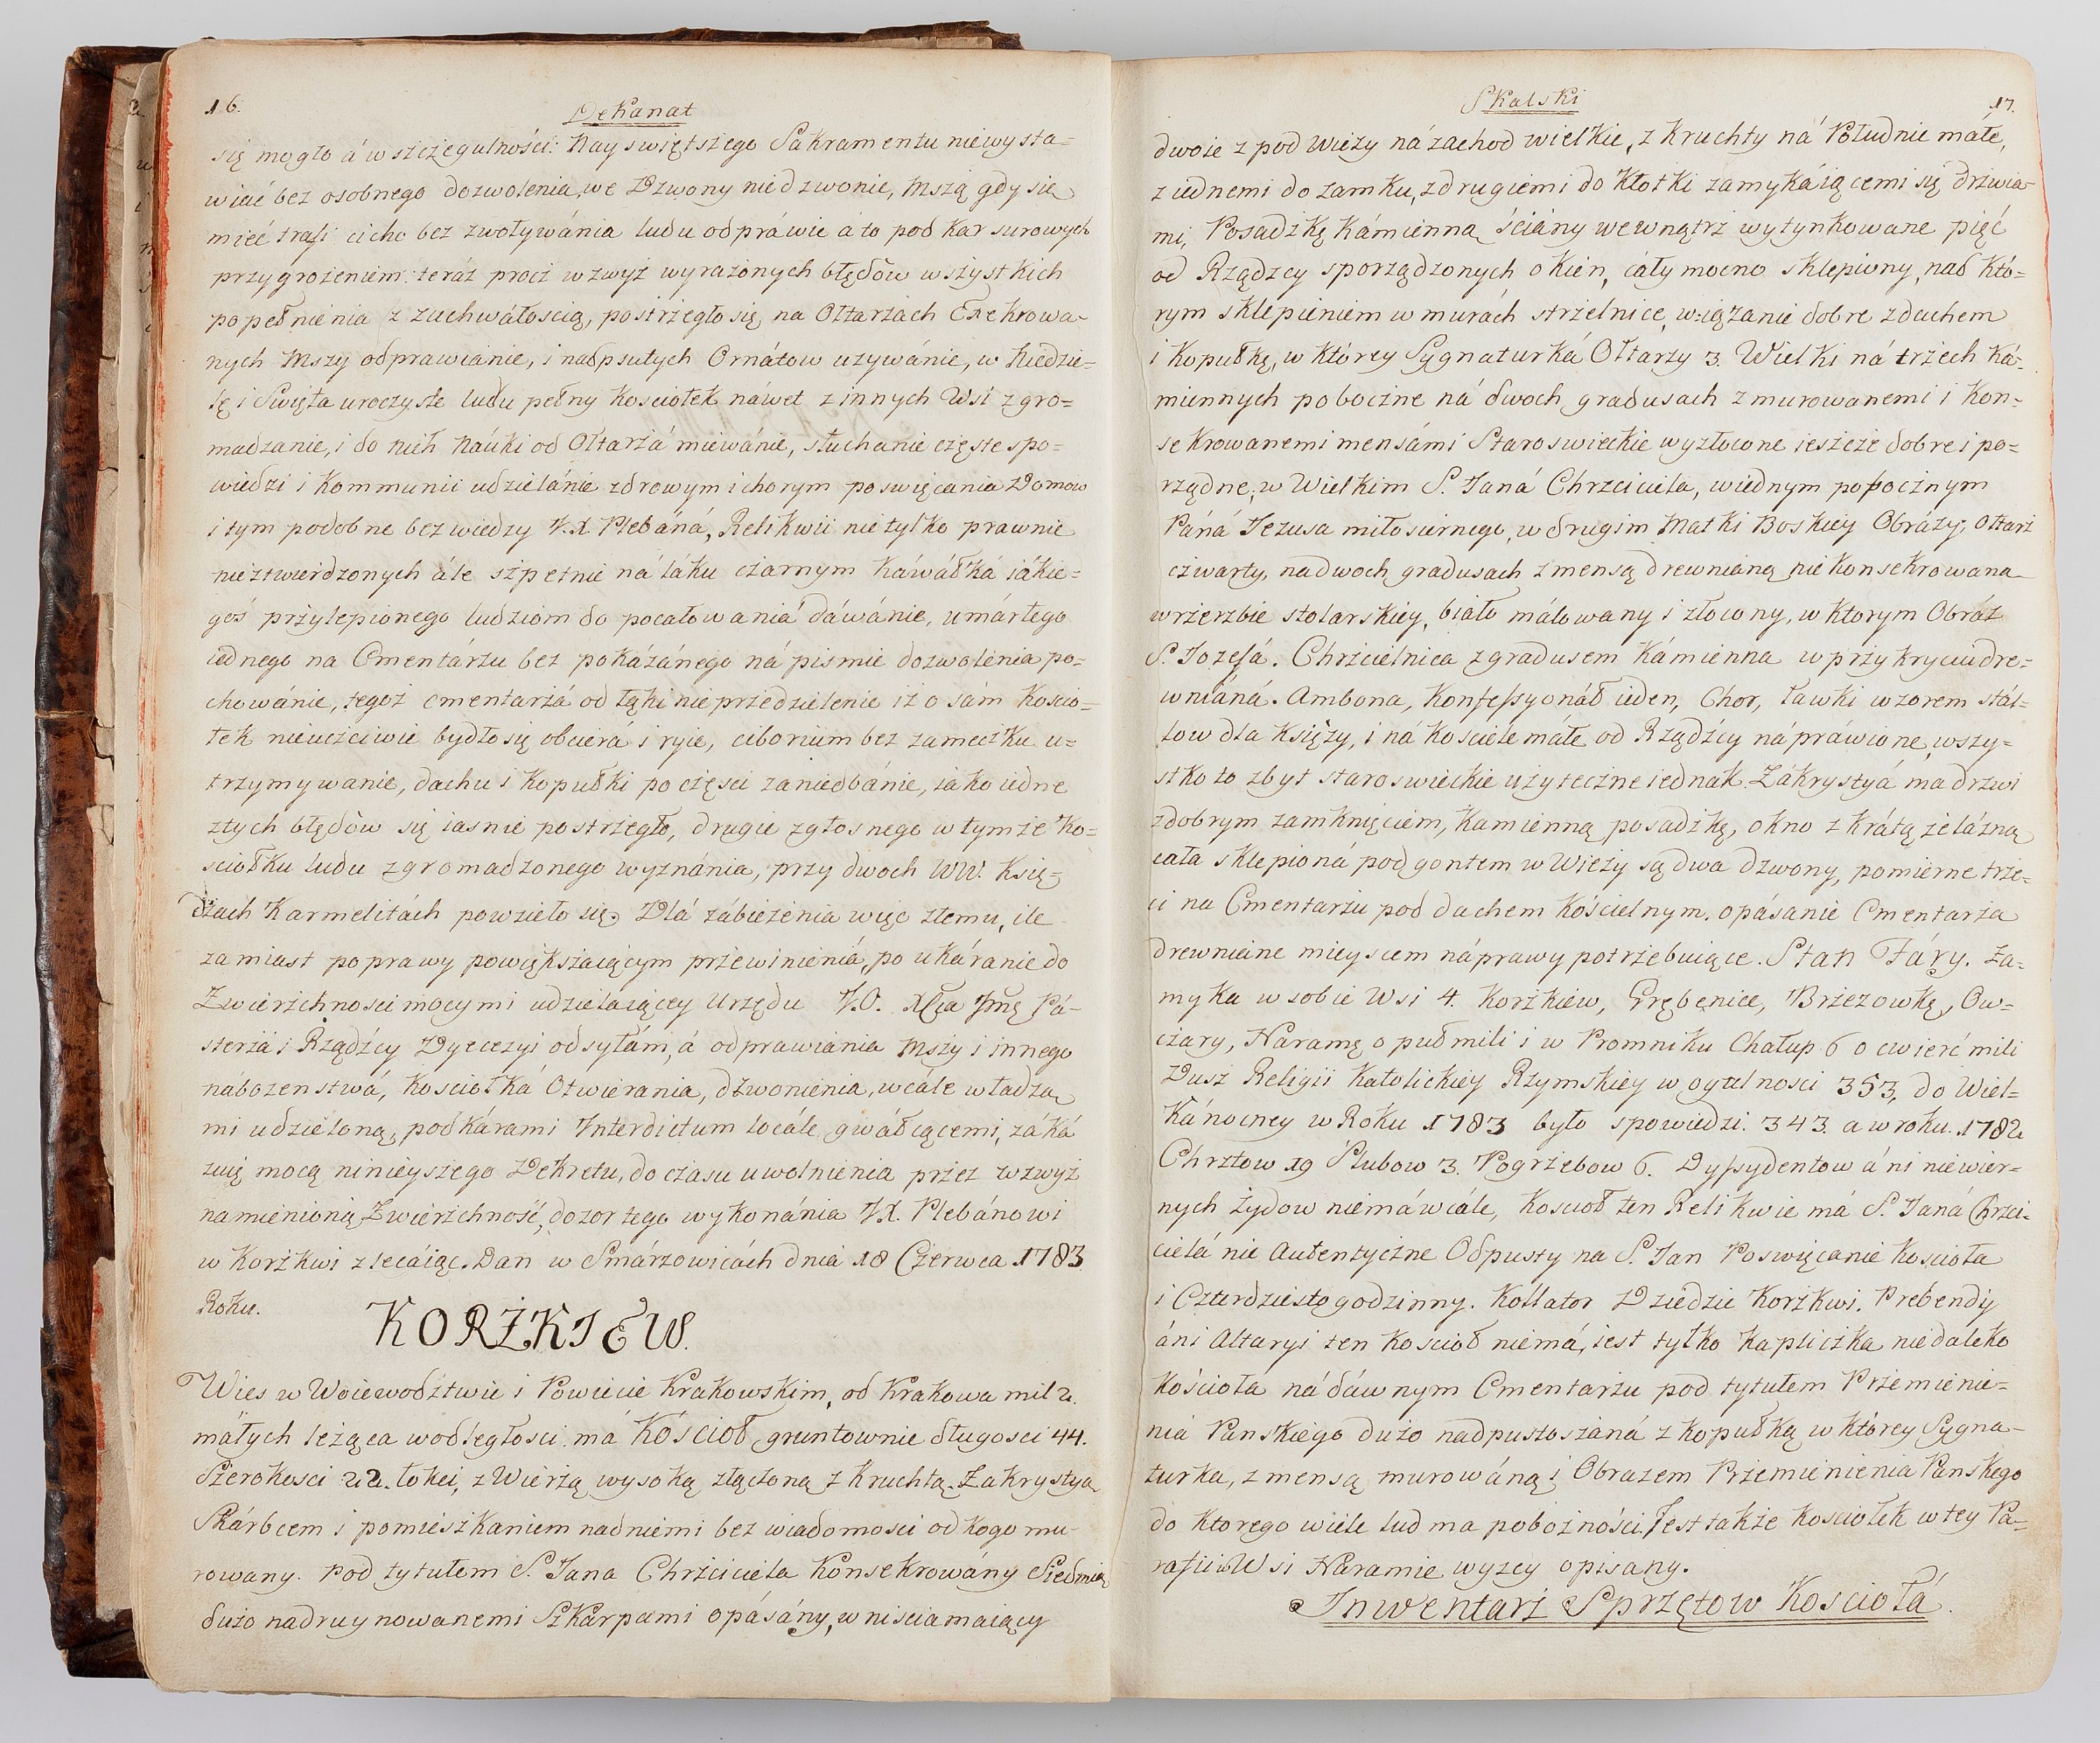 16.
Dekanat
się mogło á w szczegulności: Nayswiętszego Sakramentu niewysta=
wiać bez osobnego dozwolenia, we Dzwony niedzwonic, Mszą gdy się
mieć trafi cicho bez zwoływánia ludu odpráwić á to pod kar surowych
przygrożeniem: teráz procz wzwyż wyrażonych błędòw wszystkich
popełnienia z zuchwáłoscią, postrzegło się na Ołtarzach Exekrowa-
nych Mszy odprawianie, i nadpsutych Ornátow uzywánie, w Niedzie=
lę i Swięta uroczyste ludu pełny Kosciołek náwet z innych Wsi zgro=
madzanie, i do nich Náuki od Ołtarzá miewánie, słuchanie częste spo=
wiedzi i Kommunii udzielánie zdrowym i chorym poswięcania Domow
i tym podobne bez wiedzy J.X. Plebáná, Relikwii nie tylko prawnie
nieztwierdzonych ále szpetnie ná láku czarnym káwáłká iákie=
goś przylepionego ludziom do pocałowaniá dáwánie, umárłego
iednego na Cmentárzu bez pokázánego ná pismie dozwolenia po=
chowánie, tegoż cmentarzá od łąki nieprzedzielenie iż o sám Koscio=
łek nieuczciwie bydło się obciera i ryie, ciborium bez zameczku u=
trzymywanie, dachu i kopułki poczęsci zaniedbánie, iako iedne
z tych błędòw się iasnie postrzegło, drugie z głosnego w tymże Ko=
sciołku ludu zgromadzonego wyznánia, przy dwoch WW. Xię=
dzach Karmelitách powzieło się. Dlá zábieżenia więc złemu, ile
zamiast poprawy powiększaiącym przewinieniá, po ukáranie do
Zwierzchnosci mocy mi udzielaiącey Urzędu J.O. Xcia Jmę Pá-
sterzá i Rządźcy Dyecezyi odsyłám, á odprawiania Mszy i innego
nábozenstwá, Kosciołká Otwierania, dzwonienia, wcále władzą
mi udzieloną, pod kárami Interdictum locále gwáłcącemi, záká
zuię mocą ninieyszego Dekretu, do czasu uwolnienia przez wzwyż
namienioną Zwierzchność, dozor tego wykonánia J.X. Plebánowi
w Korzkwi zlecáiąc. Dan w Smárzowicách dnia 18 Czerwca 1783
Roku.
KORŻKIEW.
Wies w Woiewodztwie i Powiecie Krakowskim, od Krakowa mil 2.
máłych leżąca w odległosci. má Kościoł gruntownie długosci 44.
Szerokosci 22. łokci, z Wieżą wysoką złączoną z Kruchtą. Zakrystyą
Skárbcem i pomieszkaniem nad niemi bez wiadomosci od kogo mu-
rowany. Pod tytułem S. Jana Chrzciciela Konsekrowány Siedmią
dużo nadruynowanemi Szkarpami opásány, wniscia maiący
Skalski
17.
dwoie z pod Wieży ná zachod wielkie, z Kruchty ná Południe máłe,
z iednemi do zamku, z drugiemi do Kłotki zamykáiącemi się drzwia-
mi, Posadzkę Kámienną ściány wewnątrz wytynkowane pięć
od Rządzcy sporządzonych okien, cáły mocno sklepiony, nad któ=
rym sklepieniem w murách strzelnice, wiązanie dobre z dachem
i Kopułką, w ktorey Sygnaturká Ołtarzy 3. Wielki ná trzech ká=
miennych poboczne ná dwoch gradusach z murowanemi i Kon=
sekrowanemi mensámi Staroswieckie wyzłocone ieszcze dobre i po=
rządne, w Wielkim S. Janá Chrzciciela, w iednym pobocznym
Páná Jezusa miłosiernego, w drugim Matki Boskiey Obrázy, Ołtarz
czwarty, na dwoch gradusach z mensą drewnianą nie konsekrowaną
w rzezbie stolarskiey, biało málowany i złocony, w ktorym Obráz
S. Jozefá. Chrzcielnica z gradusem Kámienna w przykryciu dre=
wnianá. Ambona, Konfessyonáł ieden, Chor, ławki wzorem stál=
low dla Xięży, i ná Kosciele máłe od Rządźcy nápráwione, wszy=
stko to zbyt staroswieckie użyteczne iednak. Zákrystyá ma drzwi
z dobrym zamknięciem, Kamienną posadzkę, okno z krátą żelázną
cała sklepioná pod gontem w Wieży są dwa dzwony, pomierne trze=
ci na Cmentarzu pod dachem Kościelnym. opásanie Cmentarza
drewniane mieyscem náprawy potrzebuiące. Stan Fáry. Za=
myka w sobie Wsi 4. Korżkiew, Grębenice, Brzezowkę, Ow=
czary, Naramę o puł mili i w Promniku Chałup 6 o cwierć mili
Dusz Religii Katolickiey Rzymskiey w ogulnosci 353, do Wiel=
kánocney w Roku 1783 było spowiedzi. 343. a w roku. 1782
Chrztow 19 Slubow 3. Pogrzebow 6. Dyssydentow áni niewier=
nych żydow niemá wcále, Koscioł ten Relikwie má S. Janá Chrzci-
cielá nie Autentyczne Odpusty na S. Jan Poswięcanie Koscioła
i Czterdziesto godzinny. Kollator Dziedzic Korżkwi. Prebendy
áni Altaryi ten Koscioł niemá, iest tylko Kapliczka niedaleko
Kościołá ná dáwnym Cmentarzu pod tytułem Przemienie=
nia Panskiego dużo nadpustoszáná z kopułką w ktorey Sygna-
turka, z mensą murowáną i Obrazem Przemienienia Panskego
do ktorego wiele lud ma pobożności. Jest także Kosciołek w tey Pa=
rafii w Wsi Naramie wyzey opisany.
Inwentarz Sprzętow Kosciołá.